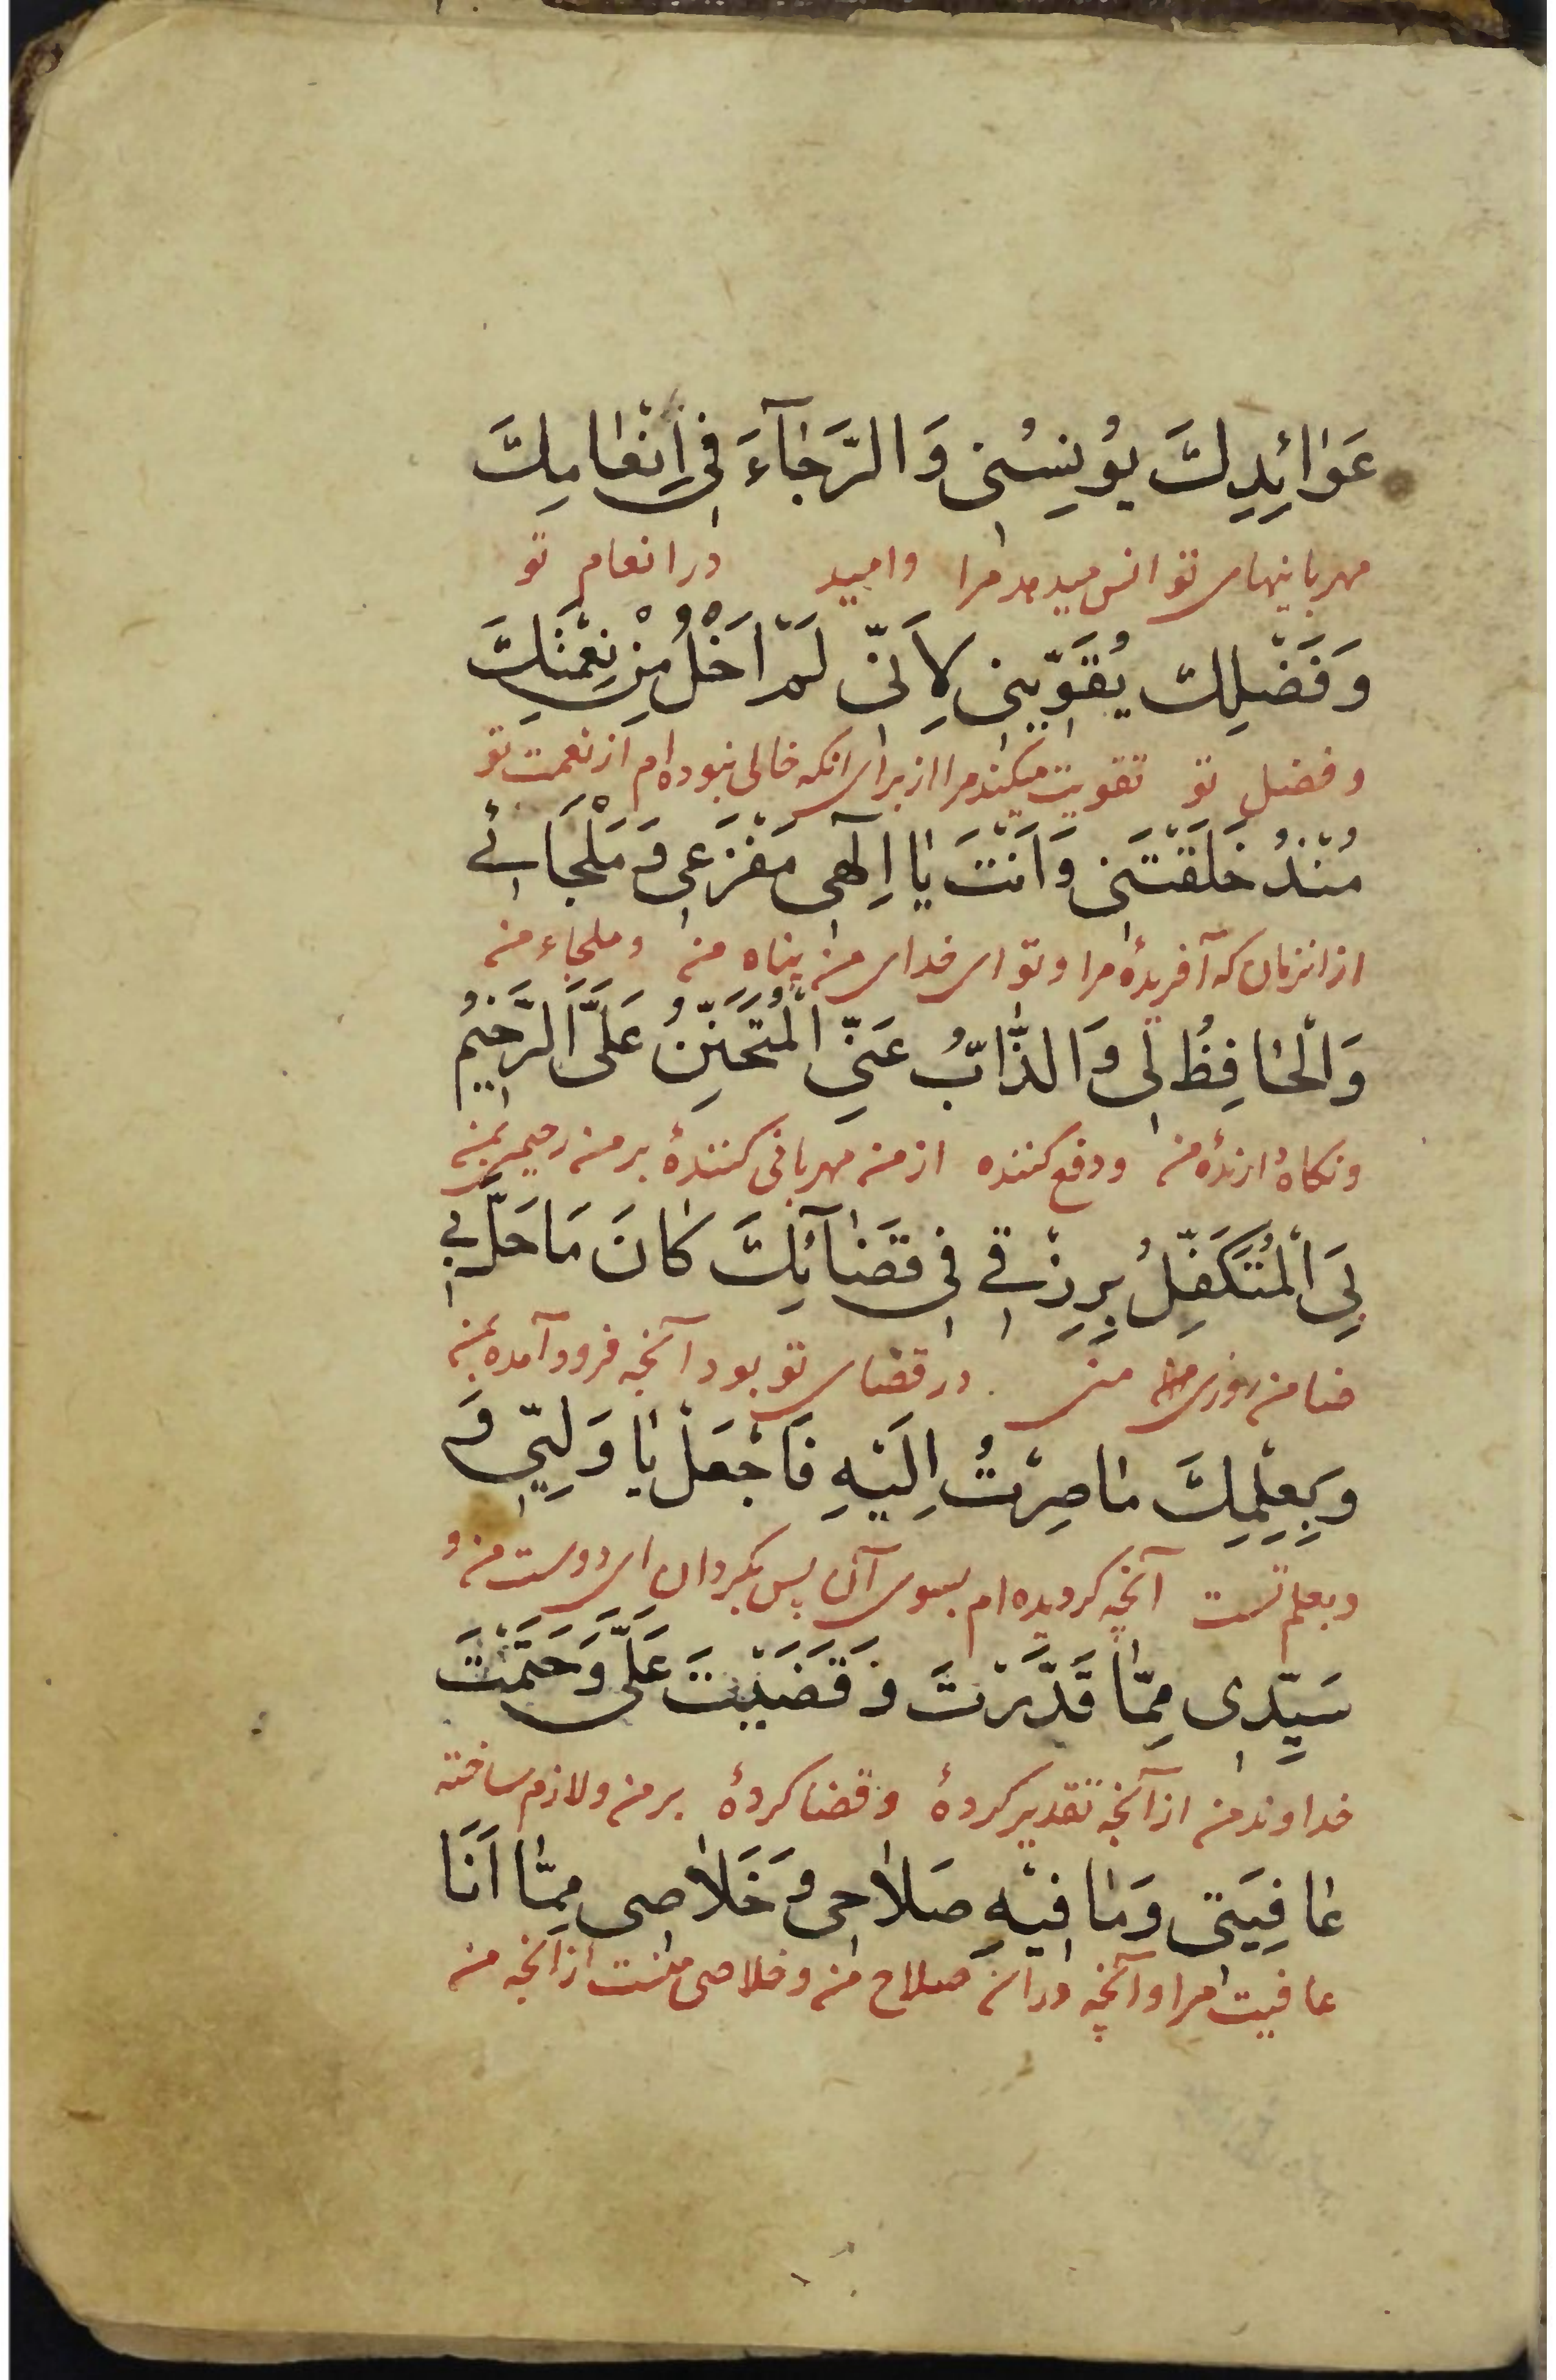 عَوٰائِدِكَ يُونِسُنى وَالرَّجٰآءَ فى اِنْعٰامِكَ
مهربانیهای تو انس میدهد مرا وامید در انعام تو
وَفَضْلِكَ يُقَوّينى لِاَنّى لَمْ اَخْلُ مِنْ نِعْمَتِكَ
وفضل تو تقویت میکند مرا از برای انکه خالی نبوده ام از نعمت تو
مُنْذُ خَلَقْتَنى وَاَنْتَ يٰا اِلٓهى مَفْزَعى وَ مَلْجَائى
از انزمان که آفریدهٔ مرا وتو ای خدای من پناه من وملجاء من
وَالْحٰافِظُ لى وَالذّٰابُّ عَنّى الْمُتَحَنِّنُ عَلَىَّ الرَّحيمُ
ونکاه دارندهٔ من ودفع کننده از من مهربانی کنندهٔ بر من رحیم بمن
بِىَ الْمُتَكَفِّلُ بِرِزْقى فى قَضٰآئِكَ كٰانَ مَا حَلَّ بى
ضامن روزی من در قضای تو بود آنچه فرود آمده بمن
وَبِعِلْمِكَ مٰا صِرْتُ اِلَيْهِ فَاجْعَلْ يٰا وَلِيّى وَ
وبعلم تست آنچه کردیده ام بسوی آن پس بکردان ای دوست من و
سَيِّدى مِمّٰا قَدَّرْتَ وَ قَضَيْتَ عَلَىَّ وَحَتَمْتَ
خداوند من از آنچه تقدیر کردهٔ وقضا کردهٔ بر من ولازم ساخته
عٰافِيَتى وَمٰا فيْهِ صَلاٰحى وَخَلاٰصى مِمّٰا اَنَا
عافیت مرا وآنچه در ان صلاح من وخلاصی منست از انچه من